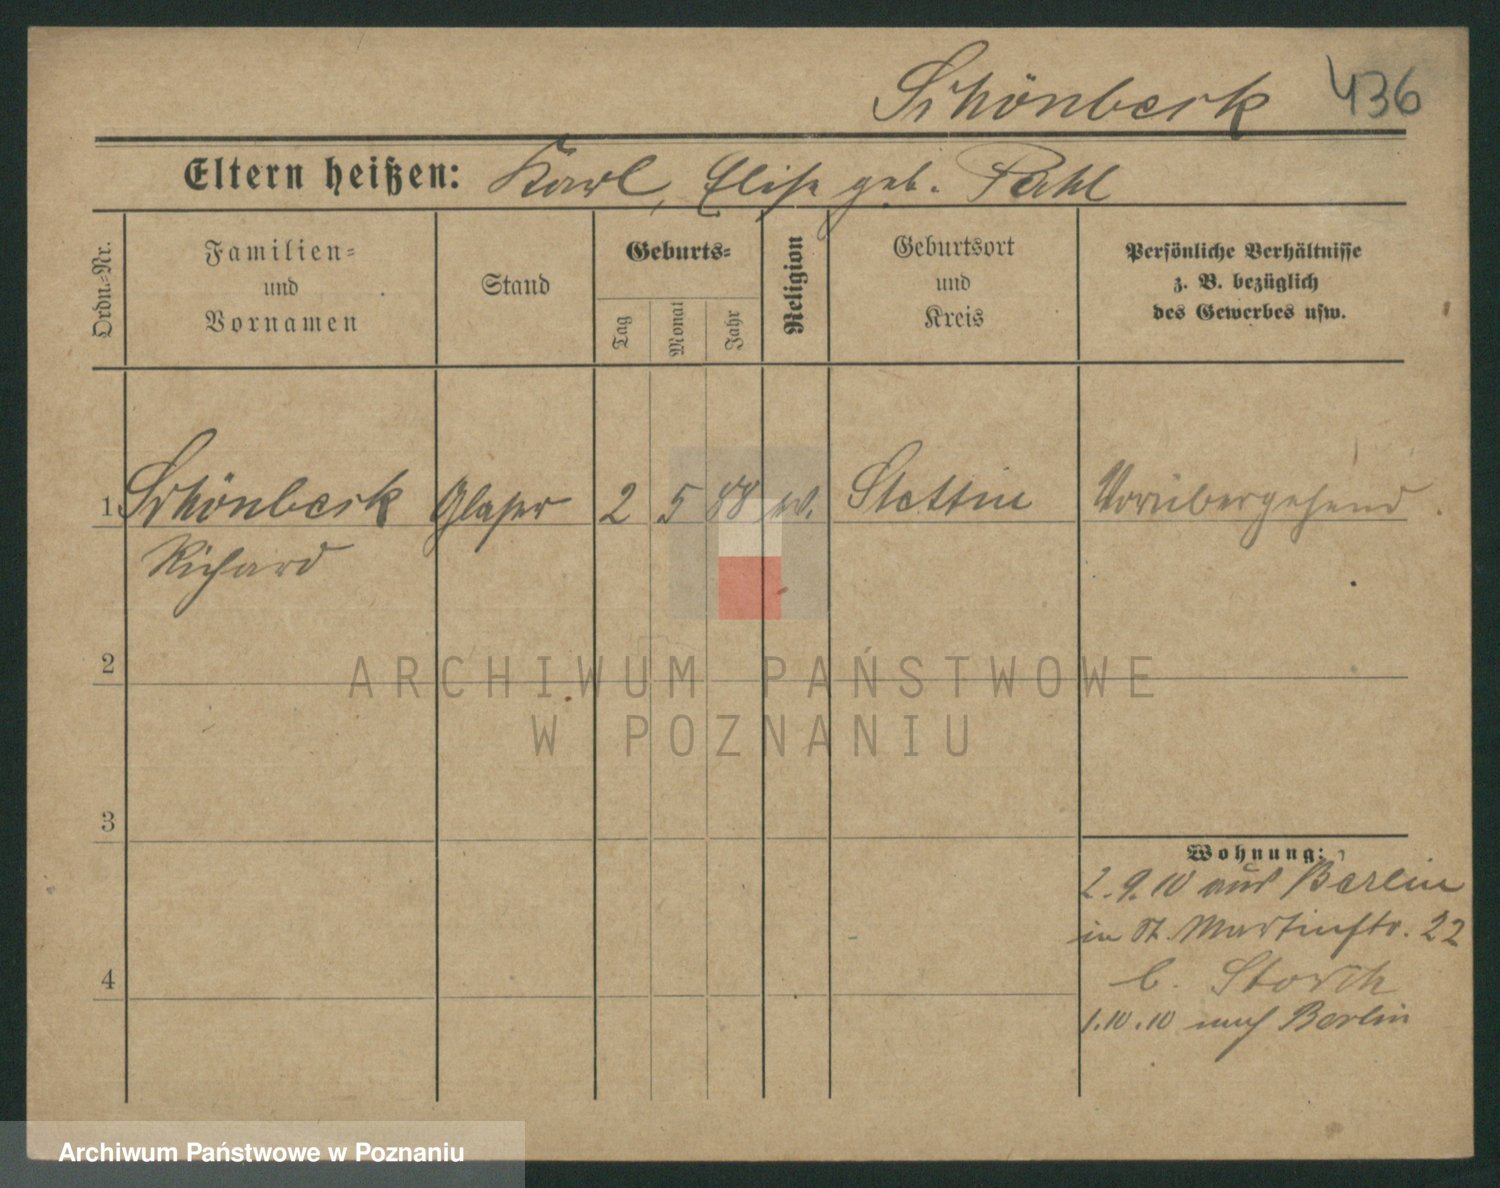 Schönbeck 436
Eltern heißen: Karl, Elise geb. Pahl
Ordn.-Nr.
Familien-
und
Vornamen
Stand
Geburts-
Tag
Monat
Jahr
Religion
Geburtsort
und
Kreis
Persönliche Verhältnisse
z. B. bezüglich
des Gewerbes usw.
1 Schönbeck Glaser 2 5 88 Stettin Vorübergehend
Richard
2
3
4
Wohnung:
2.9.10 aus Berlin
in St. Martinstr. 22
b. Storch
1.10.10 nach Berlin
ARCHIWUM PAŃSTWOWE
W POZNANIU
Archiwum Państwowe w Poznaniu